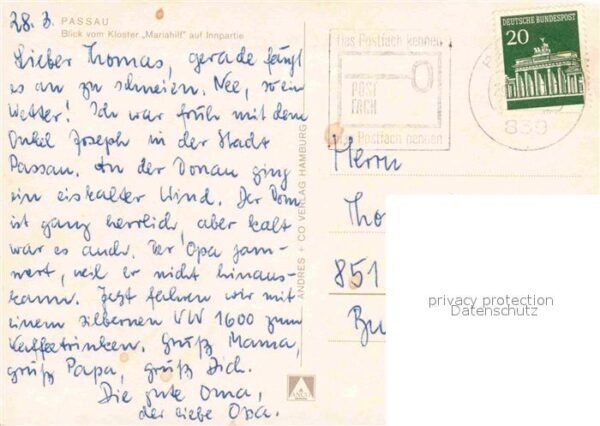 28. 3. PASSAU
Blick vom Kloster „Mariahilf" auf Innpartie
Lieber Thomas, gerade fängt
es an zu schneien. Nee, so ein
Wetter! Ich war früh mit dem
Onkel Joseph in der Stadt
Passau. An der Donau ging
ein eiskalter Wind. Der Dom
ist ganz herrlich, aber kalt
war es auch. Der Opa jam-
mert, weil er nicht hinaus-
kann. Jetzt fahren wir mit
einem silbernen VW 1600 zum
Kaffeetrinken. Grüß Mama,
grüß Papa, grüß Dich.
Die gute Oma,
der liebe Opa.
ANDRES + CO VERLAG HAMBURG
Das Postfach kennen
POST
FACH
Das Postfach nennen
839
DEUTSCHE BUNDESPOST
20
Herrn
Tho
851
privacy protection
Datenschutz